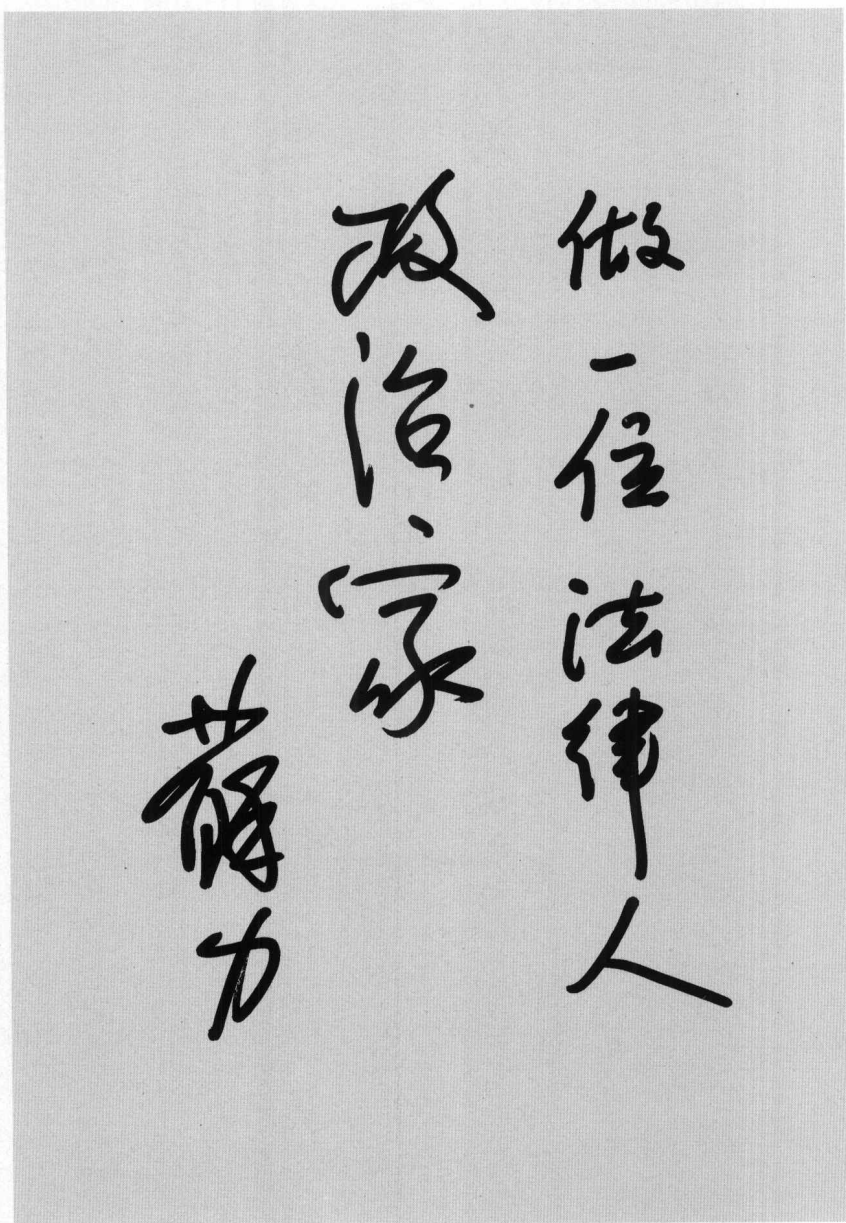 做一位法律人
政治家
薛力